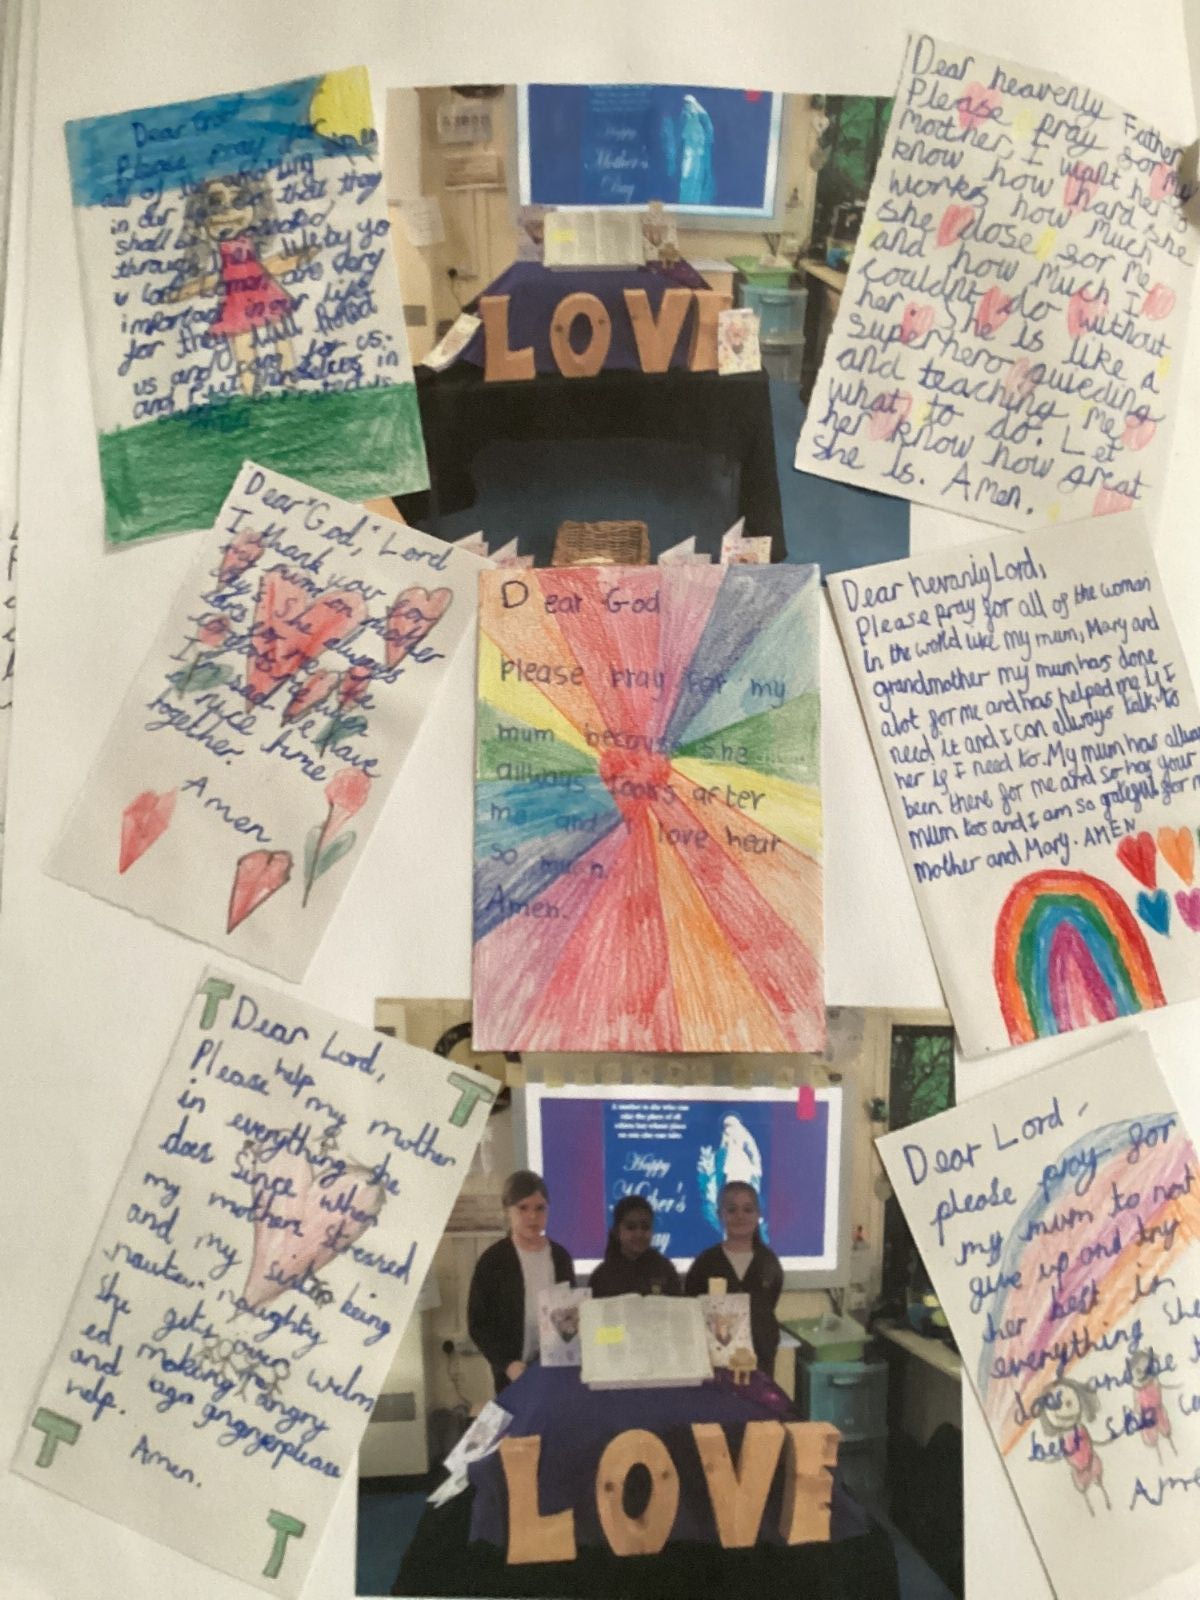 Dear God
Please pray for
all of the
in our so that they
shall be
through their life by yo
u lord women are very
important in our life
for they will
us and care for us.
and in
Happy
Mother's
Day
LOVE
Dear heavenly Father
Please pray sor my
mother, I want her to
know how hard she
works how much
she dose sor me
and how much I
couldnt do without
her. She is like a
superhero guieding
and teaching me
what to do. Let
her know how great
she is. Amen.
Dear "God," Lord
I thank you for
my mum on mother
day's she always
cares for me
I'm sad we have
a nice time
together.
Amen
Dear God
please pray for my
mum because she
allways looks after
me and I love hear
so much.
Amen.
Dear hevanly Lord,
Please pray for all of the woman
in the world like my mum, Mary and
grandmother my mum has done
alot for me and has helped me if I
need it and I can always talk to
her if I need to. My mum has allway
been there for me and so has your
mum too and I am so grateful for m
mother and Mary. AMEN
T
T
Dear Lord,
Please help my mother
in everything she
does since when
my mothers stressed
and my sister being
naughty
she gets over welm
ed making angry
and please
help.
Amen.
T
T
A mother is she who can
take the place of all
others but whose place
no one else can take.
Happy
Mother's
Day
LOVE
Dear Lord -
please pray for
my mum to not
give up and try
her best in
everything she
does and be the
best she